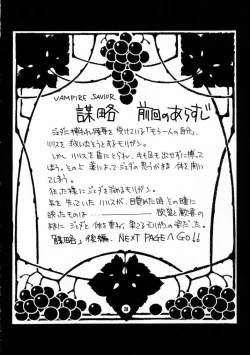 VAMPIRE SAVIOR
謀略 前回のあらすじ
ジェダに捕われ陵辱を受けている「もう一人の自分」、
リリスを救い出そうとするモリガン。
しかしリリスを盾にとられ、手も足も出せずに捕って
しまう。そのえ 薬によってジェダの思うがまま体を開い
てしまう。
狂った様にジェダを求めるモリガン。
気を失っていたリリスが、目覚めた時、その瞳に
映ったものは 欲望と敵者の
ままにジェダと体を重ね、果てるモリガンの姿だった。
「謀略」後編、NEXT PAGEへGO!!